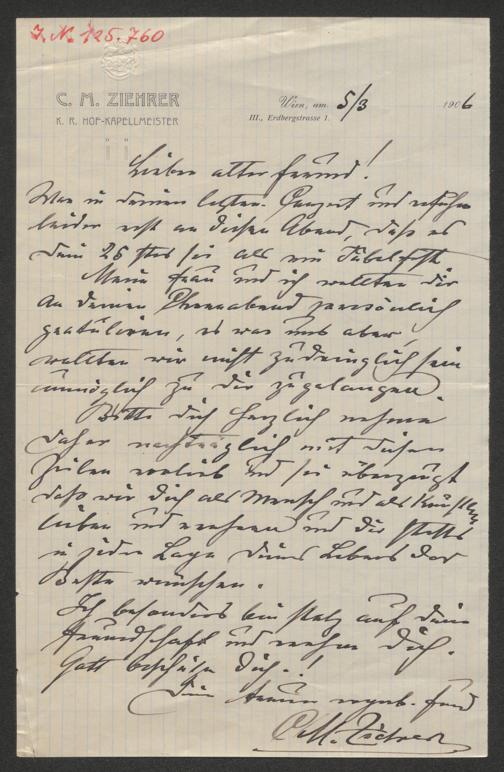 I. N. 125.760
C. M. ZIEHRER
K. K. HOF-KAPELLMEISTER
Wien, am 5/3 1906
III., Erdbergstrasse 1.
Lieber alter Freund!
War in deinem letzten Conzert und erfuhr
leider erst an diesen Abend, daß es
dein 25 stes sei als ein Jubelfest
Meine Frau und ich wollten dir
an deinem Ehrenabend persönlich
gratuliren, es war uns aber,
wollten wir nicht zudringlich sein
unmöglich zu dir zugelangen.
Bitte dich herzlich nehme
daher nachträglich mit diesen
Zeilen vorlieb und sei überzeugt
daß wir dich als Mensch und als Künstler
lieben und verehren und dir stetts
in jeder Lage deines Lebens das
Beste wünschen.
Ich besonders bin stolz auf deine
Freundschaft und verehre dich.
Gott beschütze dich.!
Dein treuer ergeb. Freund
C. M. Ziehrer